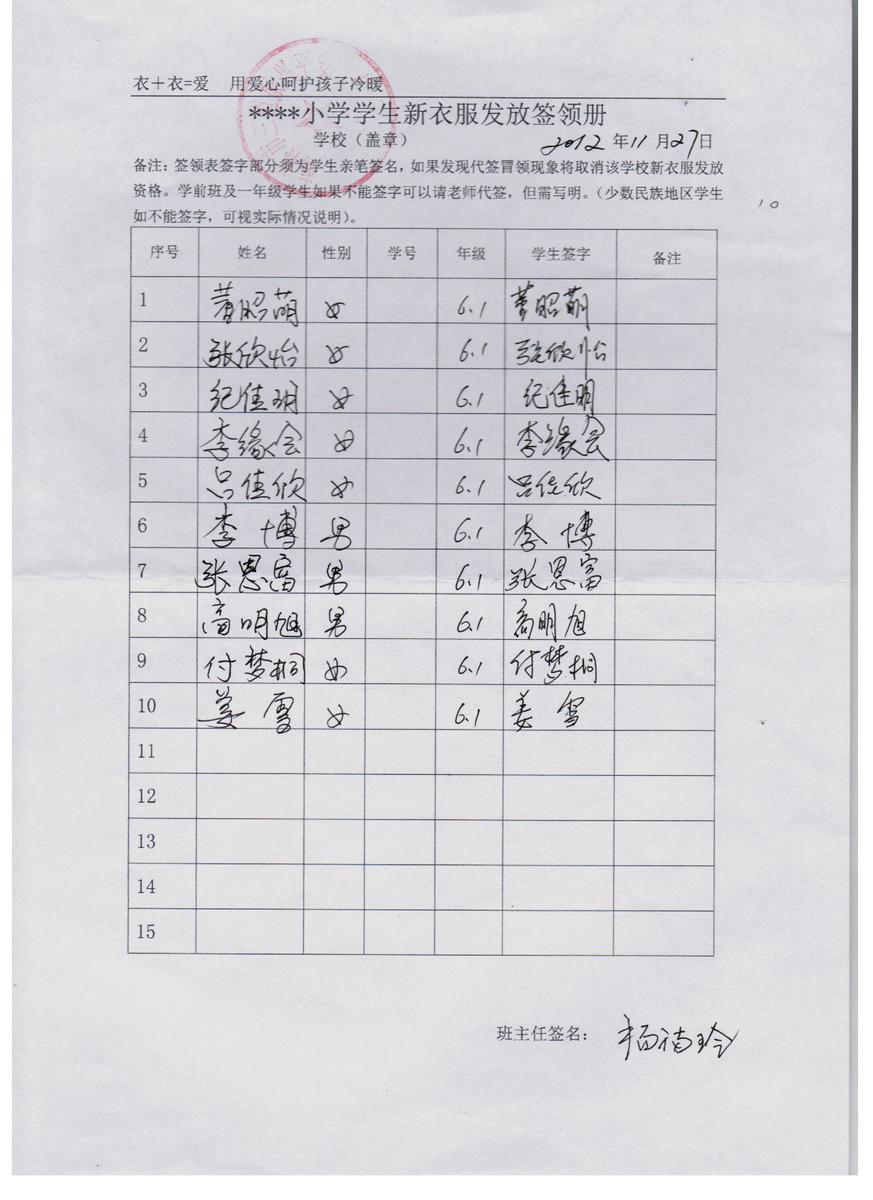 衣＋衣=爱 用爱心呵护孩子冷暖
****小学学生新衣服发放签领册
学校（盖章） 2012 年 11 月 27 日
备注：签领表签字部分须为学生亲笔签名，如果发现代签冒领现象将取消该学校新衣服发放
资格。学前班及一年级学生如果不能签字可以请老师代签，但需写明。（少数民族地区学生
如不能签字，可视实际情况说明）。
10
序号 姓名 性别 学号 年级 学生签字 备注
1 董昭萌 女 6.1 董昭萌
2 张欣怡 女 6.1 张欣怡
3 纪佳明 女 6.1 纪佳明
4 李缘会 女 6.1 李缘会
5 吕佳欣 女 6.1 吕佳欣
6 李博 男 6.1 李博
7 张恩富 男 6.1 张恩富
8 高明旭 男 6.1 高明旭
9 付梦桐 女 6.1 付梦桐
10 姜雪 女 6.1 姜雪
11
12
13
14
15
班主任签名： 杨福玲